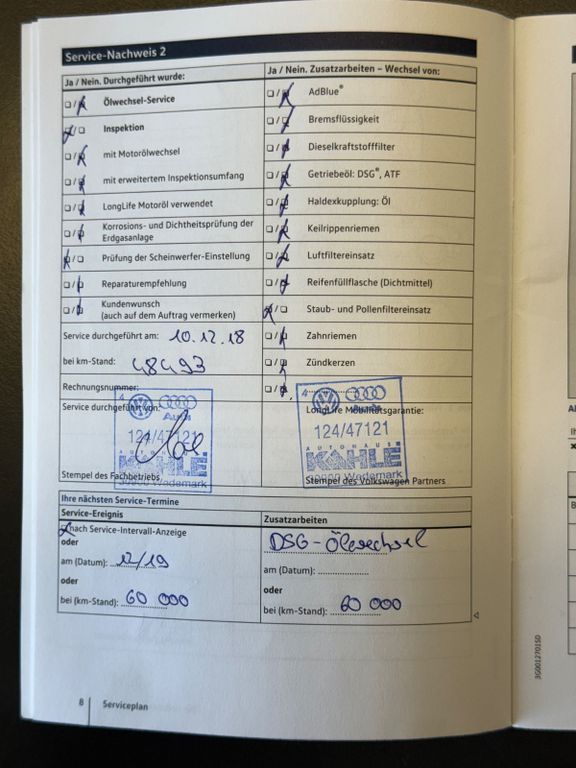 Service-Nachweis 2
Ja / Nein. Durchgeführt wurde:
Ja / Nein. Zusatzarbeiten – Wechsel von:
Ölwechsel-Service
AdBlue®
Inspektion
Bremsflüssigkeit
mit Motorölwechsel
Dieselkraftstofffilter
mit erweitertem Inspektionsumfang
Getriebeöl: DSG®, ATF
LongLife Motoröl verwendet
Haldexkupplung: Öl
Korrosions- und Dichtheitsprüfung der
Erdgasanlage
Keilrippenriemen
Prüfung der Scheinwerfer-Einstellung
Luftfiltereinsatz
Reparaturempfehlung
Reifenfüllflasche (Dichtmittel)
Kundenwunsch
(auch auf dem Auftrag vermerken)
Staub- und Pollenfiltereinsatz
Service durchgeführt am: 10.12.18
Zahnriemen
bei km-Stand: 48493
Zündkerzen
Rechnungsnummer:
Service durchgeführt von:
LongLife Mobilitätsgarantie:
4
Audi
124/47121
AUTOHAUS
KAHLE
30900 Wedemark
4
Audi
124/47121
AUTOHAUS
KAHLE
30900 Wedemark
Stempel des Fachbetriebs
Stempel des Volkswagen Partners
Ihre nächsten Service-Termine
Service-Ereignis
Zusatzarbeiten
nach Service-Intervall-Anzeige
DSG-Ölwechsel
oder
am (Datum): 12/19
am (Datum):
oder
oder
bei (km-Stand): 60 000
bei (km-Stand): 60 000
3G0012701SD
8
Serviceplan